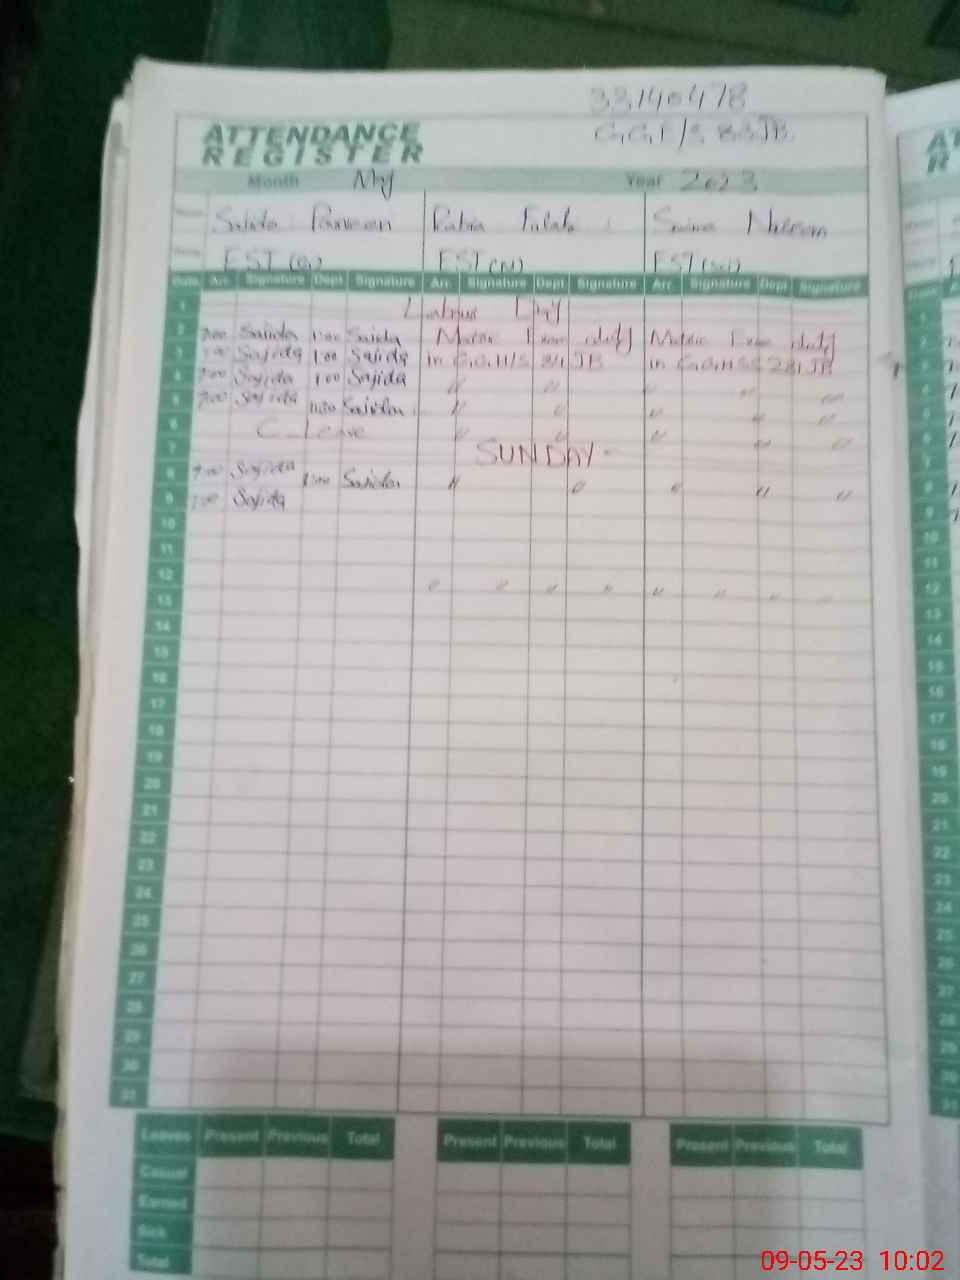 33140478
ATTENDANCE
REGISTER
G.G.E/S 83JB.
Month May Year 2023
Sajida Parveen Rabia
EST EST EST
Date Arr. Signature Dept Signature Arr. Signature Dept Signature Arr. Signature Dept Signature
1 Day
2 7:00 Sajida 1:00 Sajida Exam duty Exam duty
3 7:00 Sajida 1:00 Sajida in G.G.H/S JB in G.G.HSS JB
4 7:00 Sajida 1:00 Sajida " " " " "
5 7:00 Sajida Sajida " " " " "
6 C_Leave " " " " "
7 SUNDAY
8 7:00 Sajida Sajida " " " " "
9 7:00 Sajida
10
11
12 " " " " " " " "
13
14
15
16
17
18
19
20
21
22
23
24
25
26
27
28
29
30
31
Leaves Present Previous Total Present Previous Total Present Previous Total
Casual
Earned
Sick
Total
AT
R
09-05-23 10:02